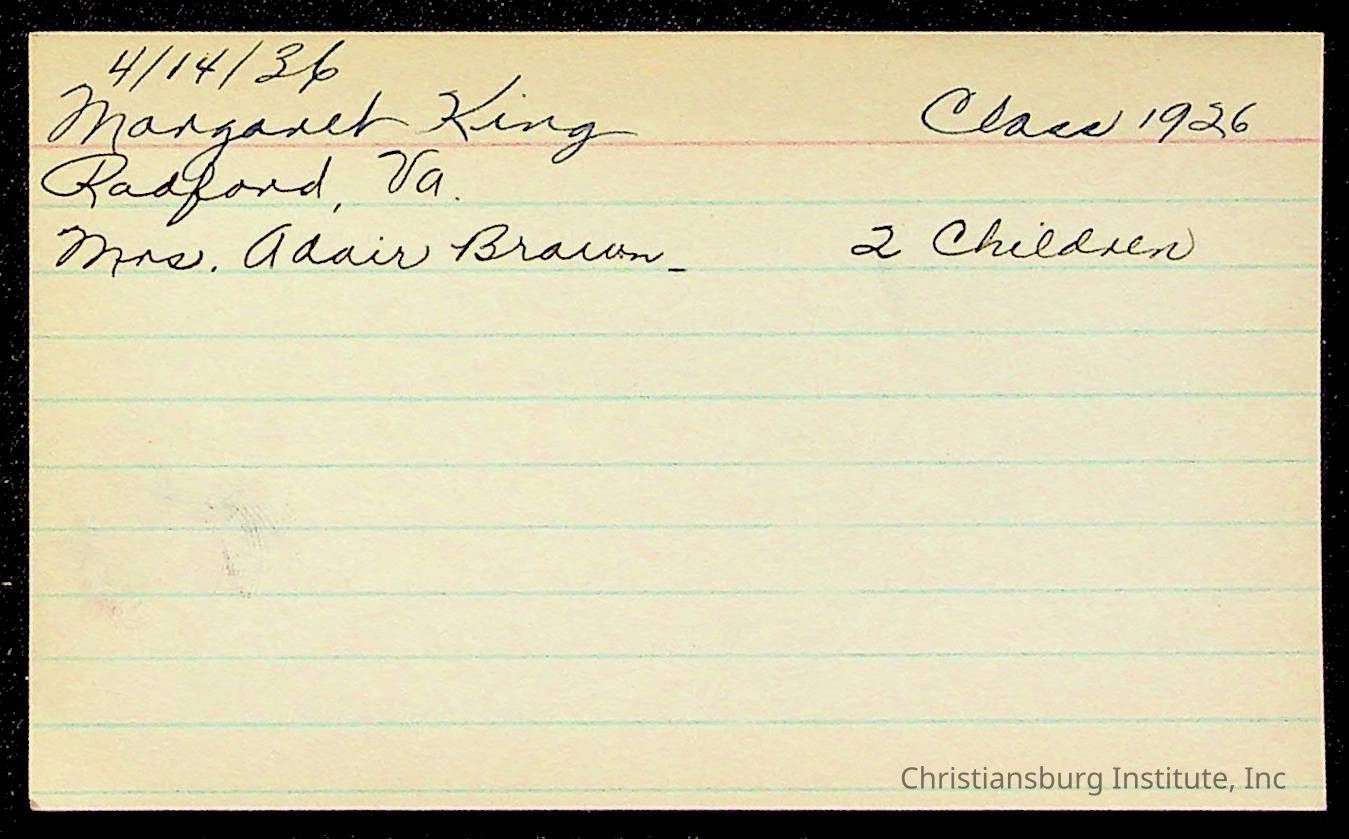 4/14/36
Margaret King Class 1926
Radford, Va.
Mrs. Adair Brown 2 Children
Christiansburg Institute, Inc